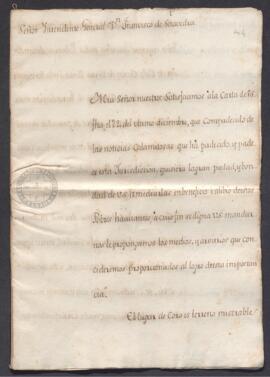 Señor Intendente General Dn. Francisco de Saavedra
Muy Señor nuestro: Satisfacemos â la Carta de VS
fha. el 22 del ultimo diciembre, que Compadecido de
las noticias Calamitosas que hâ padecido, y pade
ce esta Jurisdiccion, queria la gran piedad, y bon
dad de VS
Pobres havitantes, â cuio fin se digna VS mandar
nos le propongamos los medios, y arvitrios que con
cideremos proporcionados al logro de esta importan
cia.
El lugar de Coro es terreno miserable